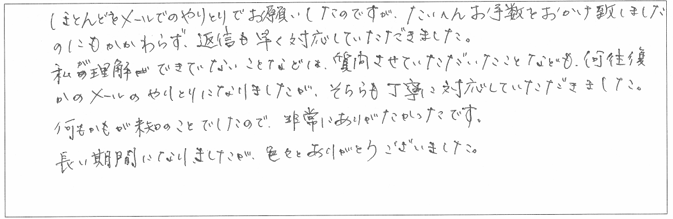 ほとんどをメールでのやりとりでお願いしたのですが、たいへんお手数をおかけ致しました
のにもかかわらず、返信も早く対応していただきました。
私が理解ができていないことなどは、質問させていただいたことなども、何往復
かのメールのやりとりになりましたが、そちらも丁寧に対応していただきました。
何もかもが未知のことでしたので、非常にありがたかったです。
長い期間になりましたが、色々とありがとうございました。